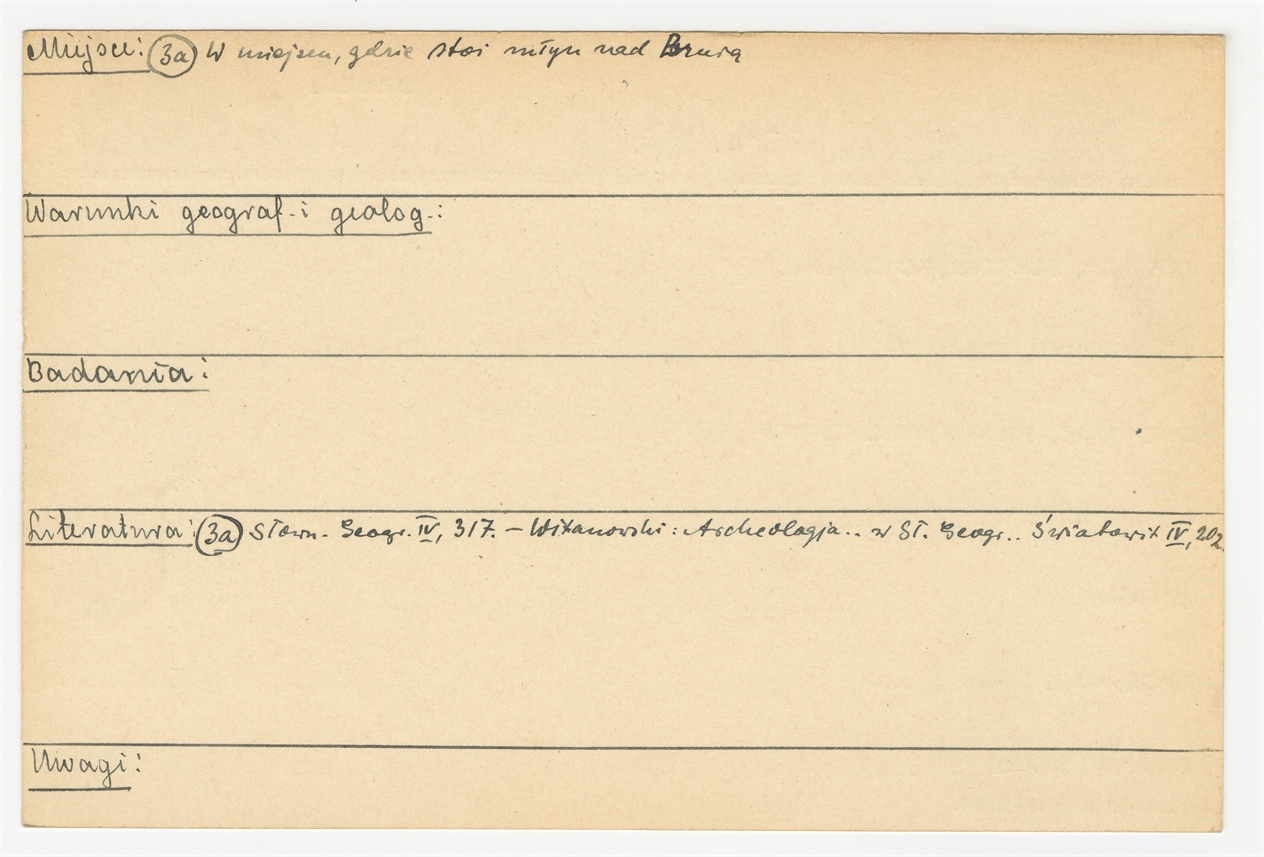 Miejsce: (3a) W miejscu, gdzie stoi młyn nad Brusą
Warunki geograf. i geolog.:
Badania:
Literatura: (3a) Słown. Geogr. IV, 317. – Witanowski: Archeologja.. w Sł. Geogr.. Światowit IV, 202.
Uwagi: